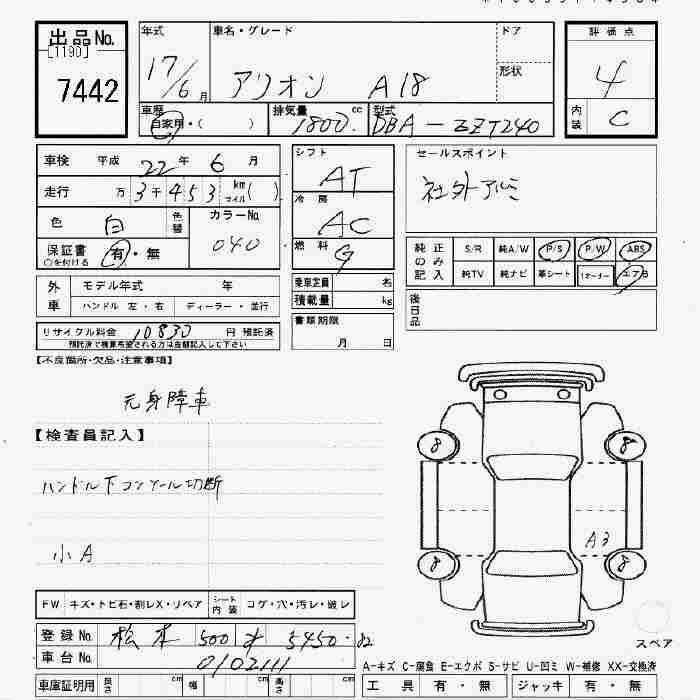 出品No.
[1190]
7442
年式
17/6月
車名・グレード
アリオン A18
ドア
形状
評価点
4
内装
C
車歴
自家用・( )
排気量
1800 cc
型式
DBA-ZZT240
車検 平成 22年 6月
走行 万 3千 4 5 3 km マイル( )
色 白 色替
カラーNo.
040
保証書 有・無
○を付ける
シフト
AT
冷房
AC
燃料
G
セールスポイント
社外アルミ
純正のみ記入
S/R 純A/W P/S P/W ABS
純TV 純ナビ 革シート 1オーナー エアB
外車
モデル年式 年
ハンドル 左・右 ディーラー・並行
乗車定員 名
積載量 kg
後日品
リサイクル料金 10830 円 預託済
預託済で積算希望される方は金額記入して下さい
書類期限
月 日
【不良箇所・欠品・注意事項】
元身障車
【検査員記入】
ハンドル下コンソール切断
小A
8 8
A3
8 8
スペア
FW キズ・トビ石・割レX・リペア シート内装 コゲ・穴・汚レ・破レ
登録No. 松本 500 す 5450
車台No. 0102111
A-キズ C-腐食 E-エクボ S-サビ U-凹ミ W-補修 XX-交換済
車庫証明用 長さ cm 幅 cm 高さ cm
工具 有・無 ジャッキ 有・無